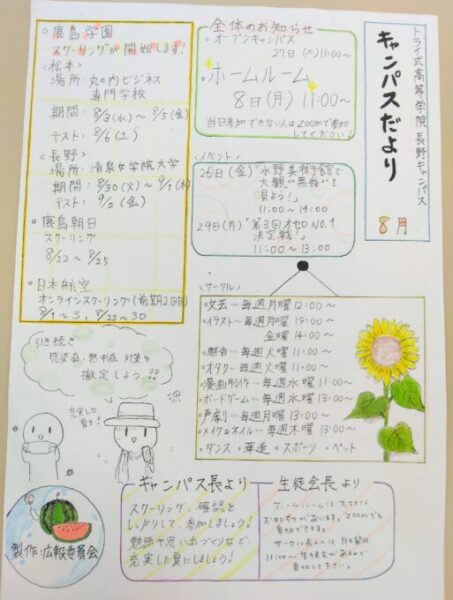 トライ式高等学院長野キャンパス
キャンパスだより
8月
全体のお知らせ
・オープンキャンパス
27日(土)11:00～
・ホームルーム
8日(月) 11:00～
当日参加できない人はzoomで参加
してください♪
・鹿島学園
スクーリングが開始します!
<松本>
場所:丸の内ビジネス
専門学校
期間: 8/3(水)～8/5(金)
テスト: 8/6(土)
<長野>
場所:清泉女学院大学
期間: 8/30(火)～9/1(木)
テスト: 9/2(金)
・鹿島朝日
スクーリング
8/22～8/25
・日本航空
オンラインスクーリング(前期2回目)
8/23～30
・イベント・
26日(金)"水野美術館で
大観"無我"を
見よう!」
11:00～14:00
29日(月)"第3回オセロNo.1
決定戦!」
11:00～13:00
・サークル・
・文芸…毎週月曜 12:00～
・イラスト…毎週月曜 15:00～
金曜 14:00～
・軽音…毎週火曜 11:00～
・オタク…毎週火曜 11:00～
・漫画制作…毎週水曜 11:00～
・ボードゲーム…毎週水曜 13:00～
・声劇…毎週月曜 13:00～
・メイク&ネイル…毎週木曜 13:00～
・ダンス・華道・スポーツ・ペット
引き続き
感染症・熱中症 対策を
徹底しよう!!
充実した
夏を!
キャンパス長より
スクーリング、確認を
しっかりして、参加しましょう!
勉強や思い出づくりなど、
充実した夏にしましょう!
生徒会長より
ホームルームは大切な
お知らせがあります。zoomでも
参加できます。
11:00～
参加してください。
製作:広報委員会